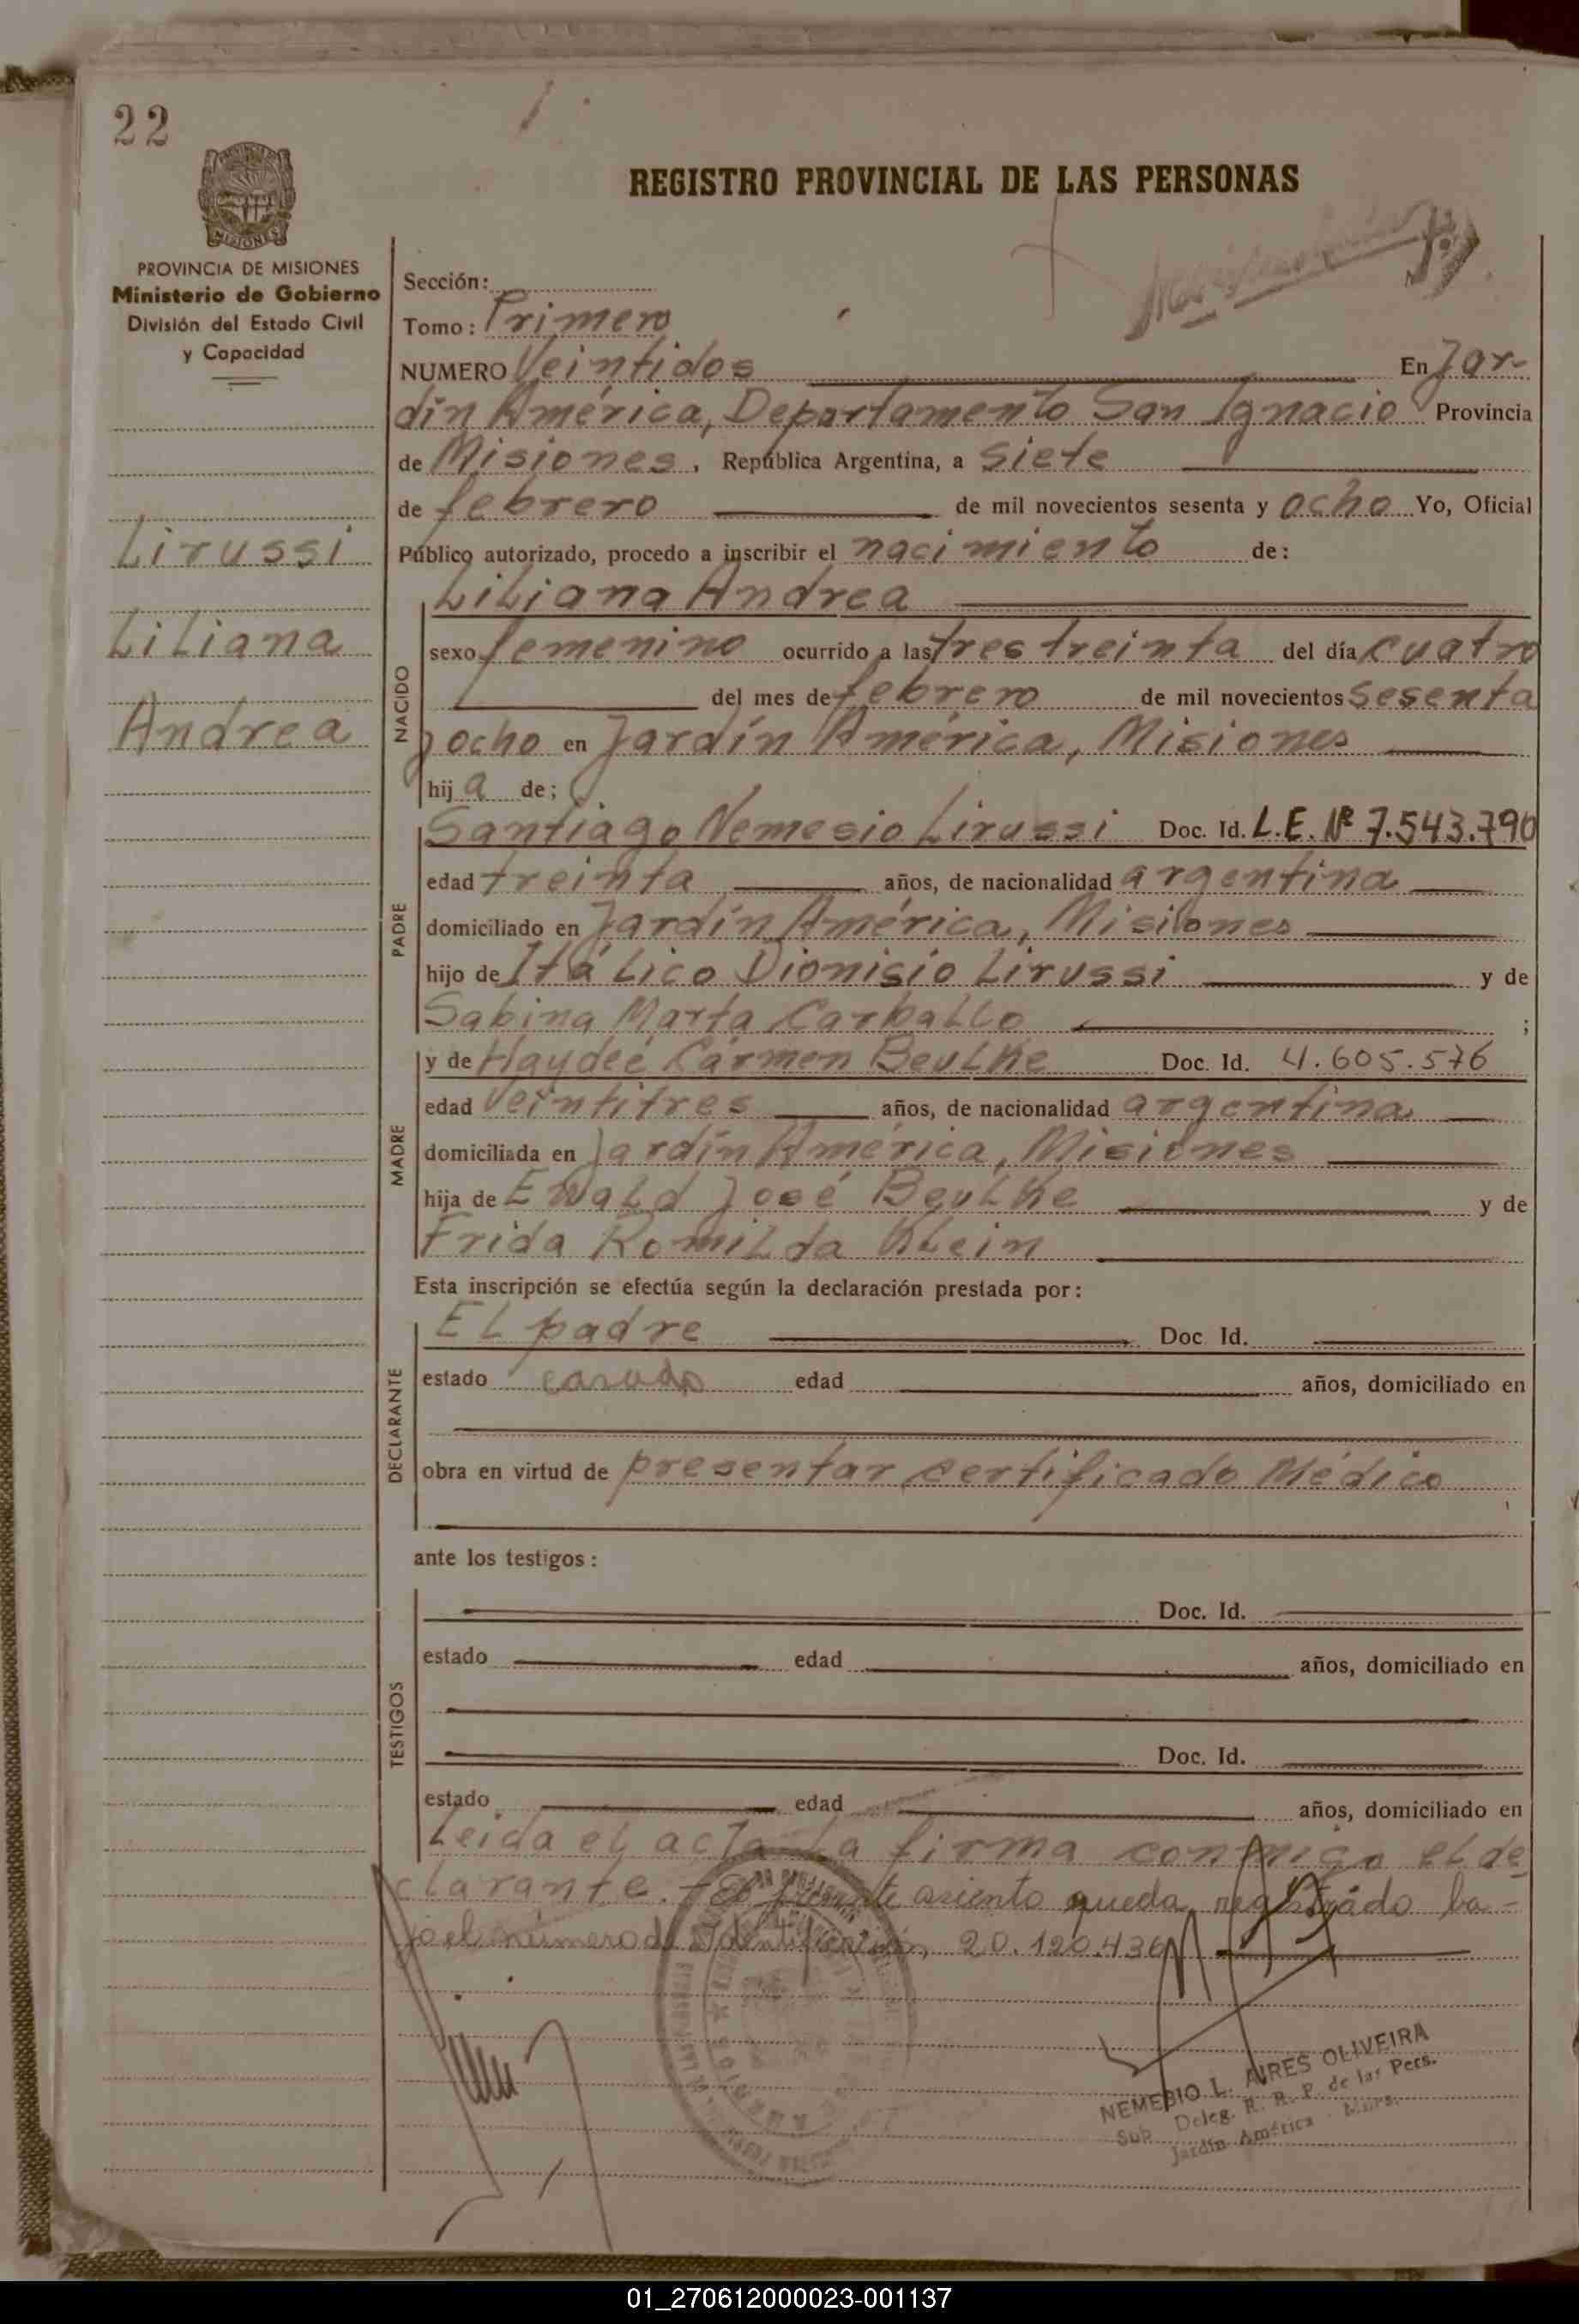 22
REGISTRO PROVINCIAL DE LAS PERSONAS
MISIONES
PROVINCIA DE MISIONES
Ministerio de Gobierno
División del Estado Civil
y Capacidad
Lirussi
Liliana
Andrea
Sección:
Tomo: Primero
NUMERO Veintidos En Jar-
dín América, Departamento San Ignacio Provincia
de Misiones, República Argentina, a siete
de febrero de mil novecientos sesenta y ocho Yo, Oficial
Público autorizado, procedo a inscribir el nacimiento de:
Liliana Andrea
NACIDO
sexo femenino ocurrido a las tres treinta del día cuatro
del mes de febrero de mil novecientos sesenta
y ocho en Jardín América, Misiones
hija de;
PADRE
Santiago Nemesio Lirussi Doc. Id. L.E. Nº 7.543.790
edad treinta años, de nacionalidad argentina
domiciliado en Jardín América, Misiones
hijo de Itálico Dionisio Lirussi y de
Sabina Marta Carballo ;
MADRE
y de Haydeé Cármen Beulke Doc. Id. 4.605.576
edad veintitres años, de nacionalidad argentina
domiciliada en Jardín América, Misiones
hija de Ewald José Beulke y de
Frida Romilda Klein
Esta inscripción se efectúa según la declaración prestada por:
DECLARANTE
El padre Doc. Id.
estado casado edad años, domiciliado en
obra en virtud de presentar certificado Médico
ante los testigos:
TESTIGOS
Doc. Id.
estado edad años, domiciliado en
Doc. Id.
estado edad años, domiciliado en
Leida el acta la firma conmigo el de
clarante.- El presente asiento queda registrado ba-
jo el número de Identificación 20.120.436
NEMESIO L. AIRES OLIVEIRA
Sub Deleg. R. R. P. de las Pers.
Jardín América - Mnes.
01_270612000023-001137